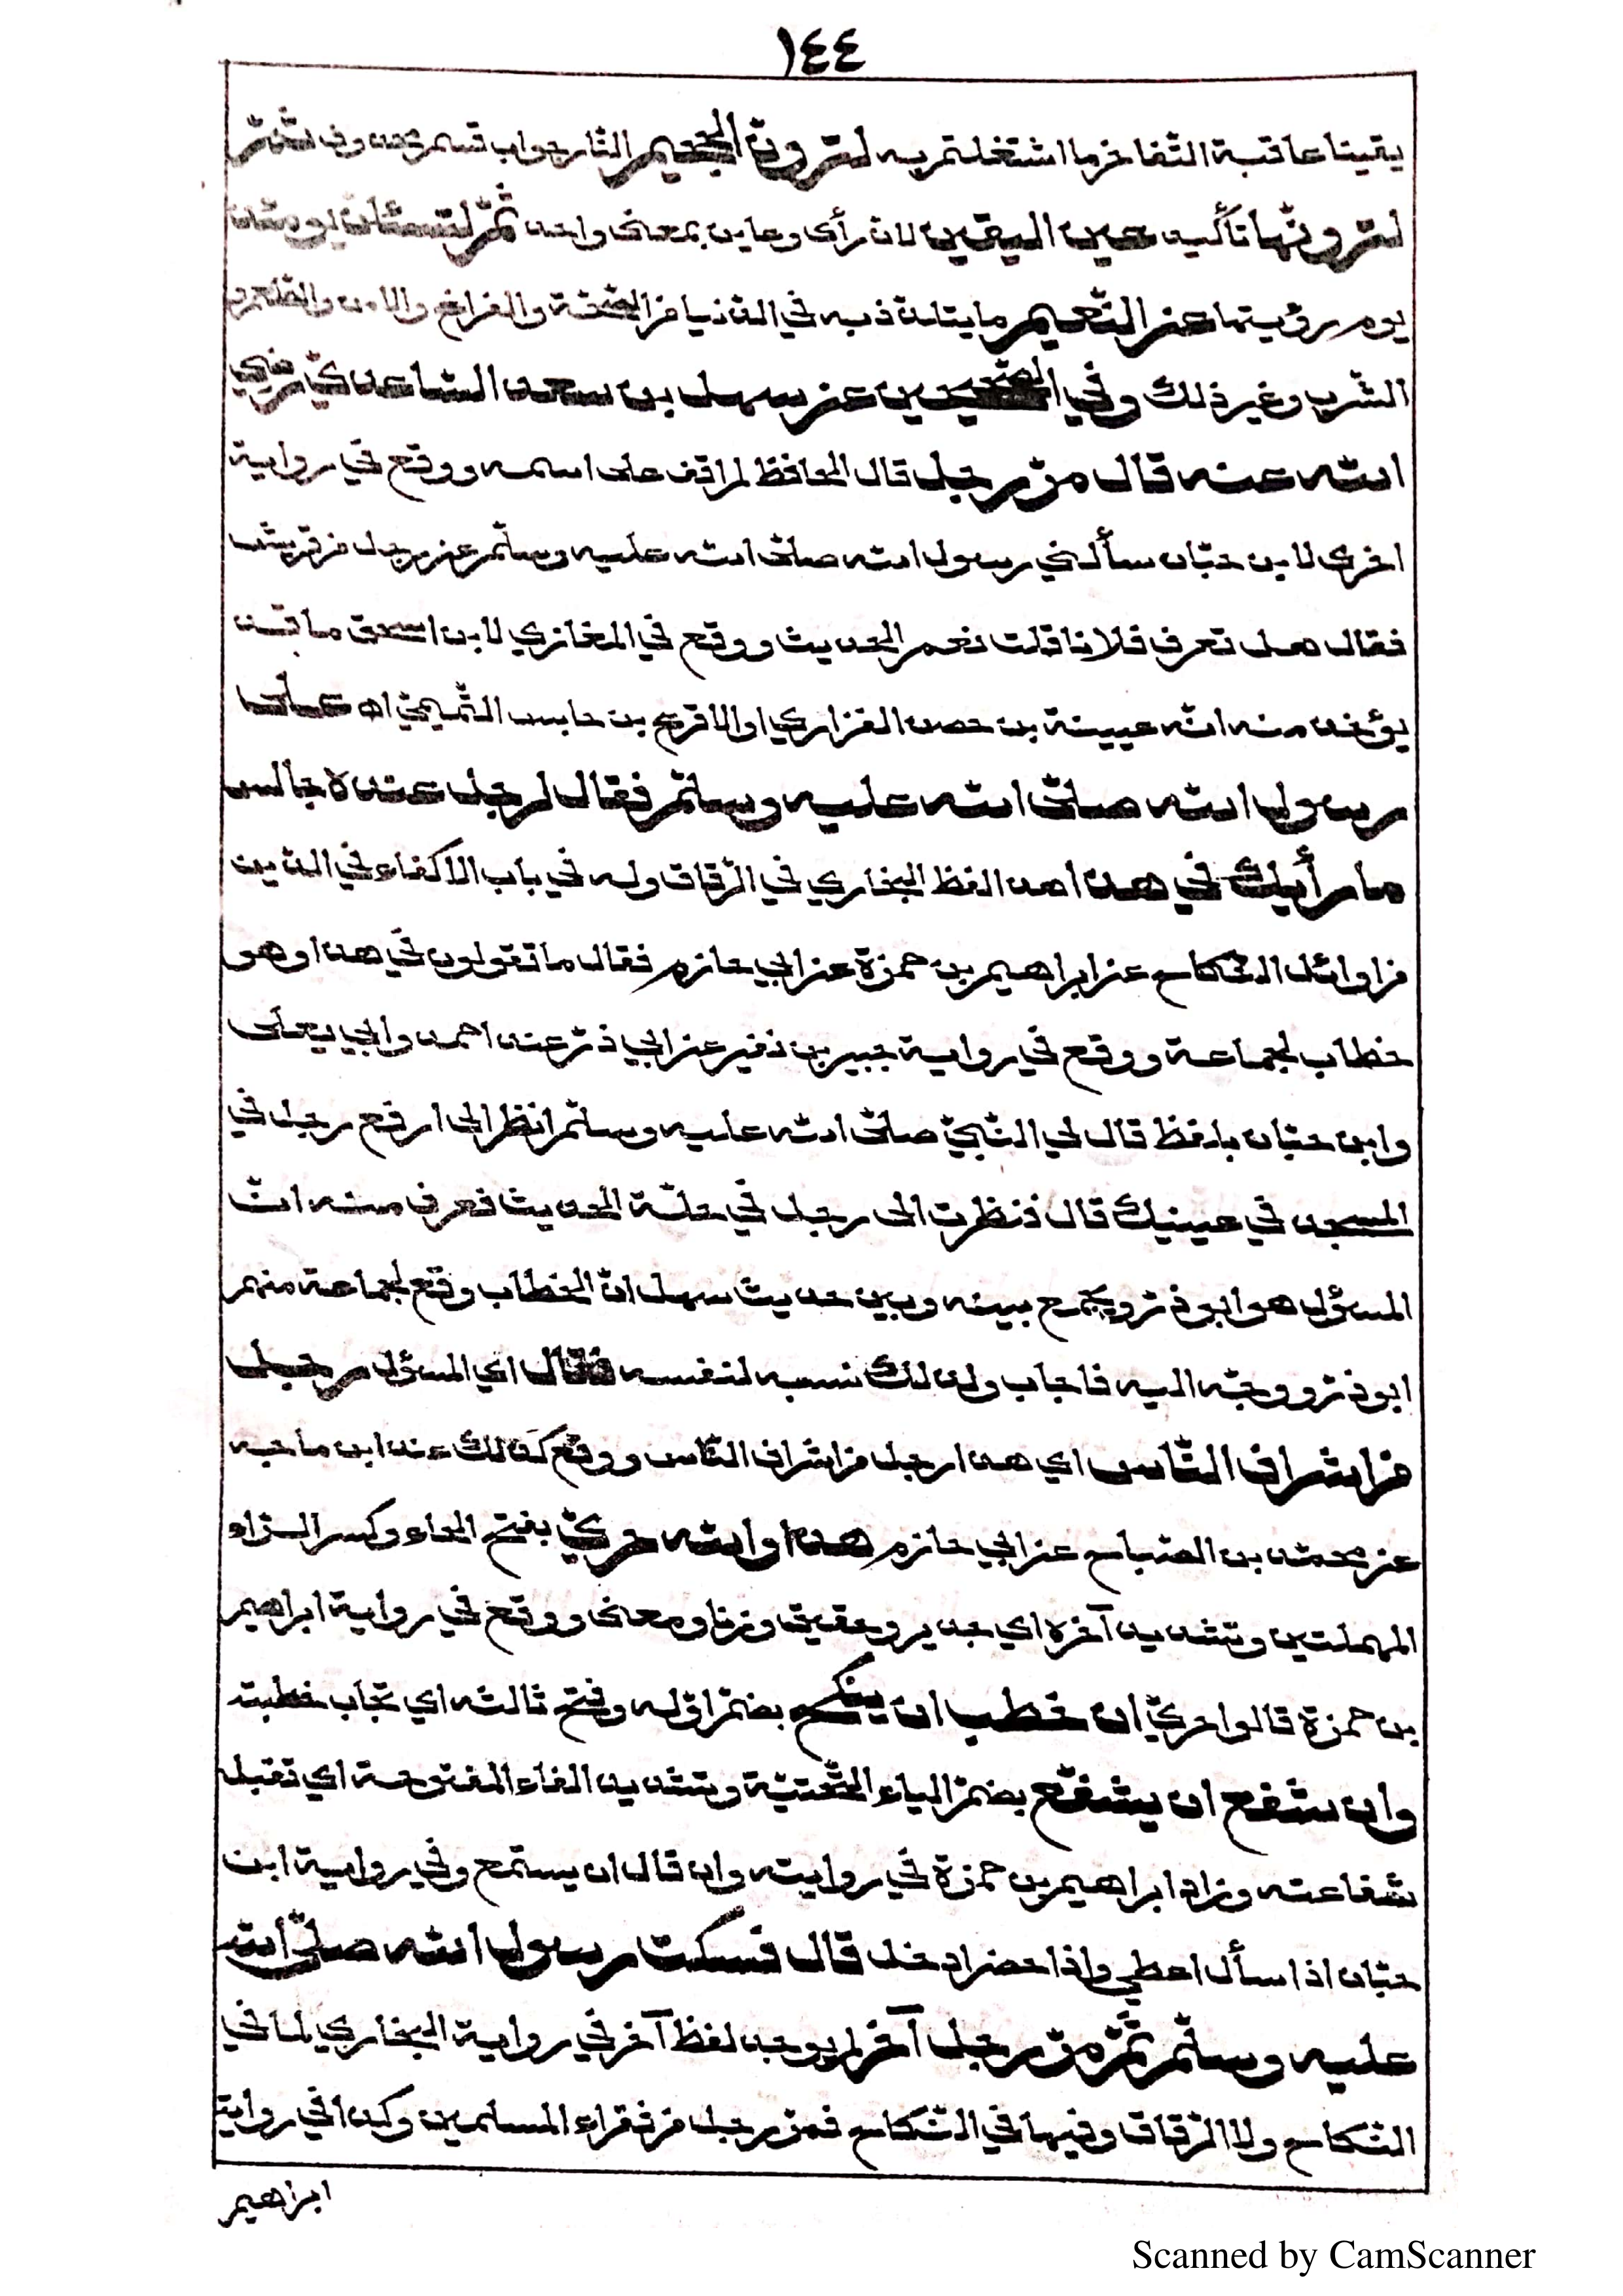 ١٤٤
يقينا عاقبة التفاخر ما اشتغلتم به لترونّ الجحيم النّار جواب قسم محذوف ثمّ
لترونّها تأكيد عين اليقين لانّ رأى وعاين بمعنى واحد ثمّ لتسئلنّ يومئذ
يوم رؤيتها عن النّعيم ما يتلذّذ به في الدّنيا من الصّحّة والفراغ والامن والمطعم و
الشّرب وغير ذلك وفي الصّحيحين عن سهل بن سعد السّاعديّ رضي
الله عنه قال مرّ رجل قال الحافظ لم اقف على اسمه ووقع في رواية
اخرى لابن حبّان سألني رسول الله صلّى الله عليه وسلّم عن رجل من قريش
فقال هل تعرف فلانا قلت نعم الحديث ووقع في المغازي لابن اسحق ما قد
يؤخذ منه انّه عيينة بن حصن الفزاري او الاقرع بن حابس التّميميّ اه على
رسول الله صلّى الله عليه وسلّم فقال لرجل عنده جالس
ما رأيك في هذا هذا لفظ البخاري في الرّقاق وله في باب الاكفاء في الدّين
من اوائل النّكاح عن ابراهيم بن حمزة عن ابي حازم فقال ما تقولون في هذا وهو
خطاب لجماعة ووقع في رواية جبير بن نفير عن ابي ذرّ عند احمد وابي يعلى
وابن حبّان بلفظ قال لي النّبيّ صلّى الله عليه وسلّم انظر الى ارفع رجل في
المسجد في عينيك قال فنظرت الى رجل في حلّة الحديث فعرف منه انّ
المسؤل هو ابو ذرّ ويجمع بينه وبين حديث سهل انّ الخطاب وقع لجماعة منهم
ابو ذرّ ووجّه اليه فاجاب ولذلك نسبه لنفسه فقال اي المسؤل رجل
من اشراف النّاس اي هذا رجل من اشراف النّاس ووقع كذلك عند ابن ماجه
عن محمّد بن الصّباح عن ابي حازم هذا والله حريّ بفتح الحاء وكسر الرّاء
المهملتين وتشديد آخره اي جدير وحقيق وزنا ومعنى ووقع في رواية ابراهيم
بن حمزة قالوا حريّ ان خطب ان ينكح بضمّ اوّله وفتح ثالثه اي تجاب خطبته
وان شفع ان يشفّع بضمّ الياء التّحتيّة وتشديد الفاء المفتوحة اي تقبل
شفاعته وزاد ابراهيم بن حمزة في روايته وان قال ان يستمع وفي رواية ابن
حبّان اذا سأل اعطي واذا حضر ادخل قال فسكت رسول الله صلّى الله
عليه وسلّم ثمّ مرّ رجل آخر لم يوجد لفظ آخر في رواية البخاري لا في
النّكاح ولا الرّقاق وفيها في النّكاح فمرّ رجل من فقراء المسلمين وكذا في رواية
ابراهيم
Scanned by CamScanner